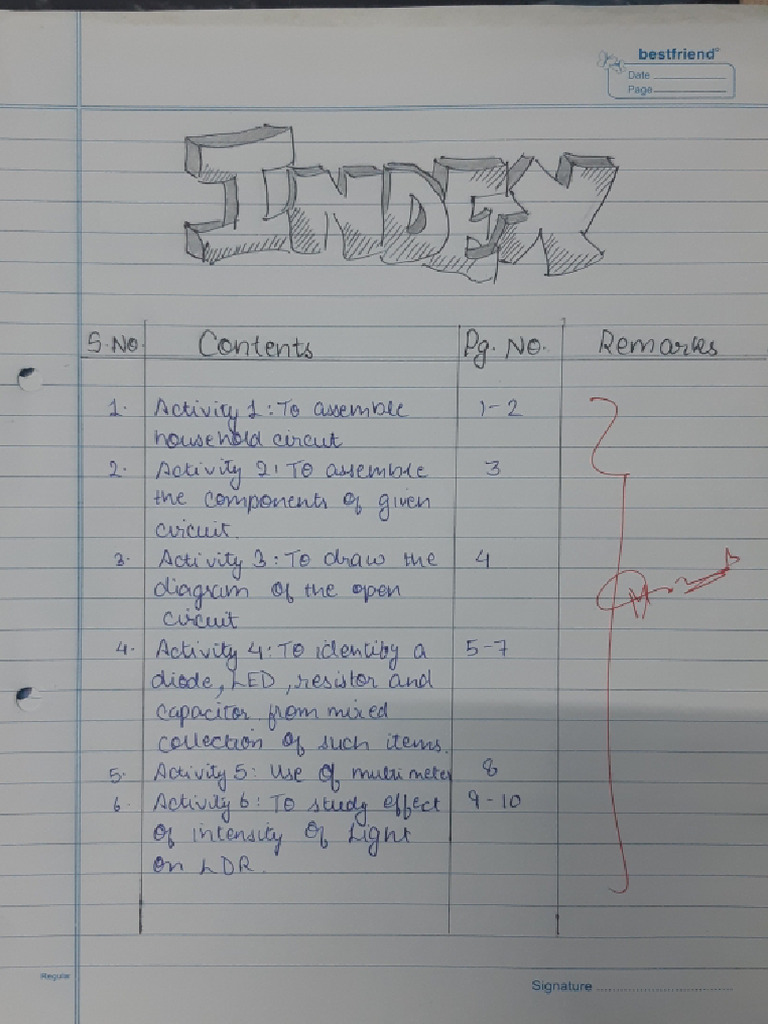 bestfriend
Date
Page
INDEX
S.No. Contents Pg. No. Remarks
1. Activity 1: To assemble 1-2
household circut
2. Activity 2: To assemble 3
the components of given
circuit.
3. Activity 3: To draw the 4
diagram of the open
circuit
4. Activity 4: To identity a 5-7
diode, LED, resistor and
capacitor from mixed
collection of such items.
5. Activity 5: Use of multimeter 8
6. Activity 6: To study effect 9-10
of intensity of Light
on LDR.
Regular
Signature